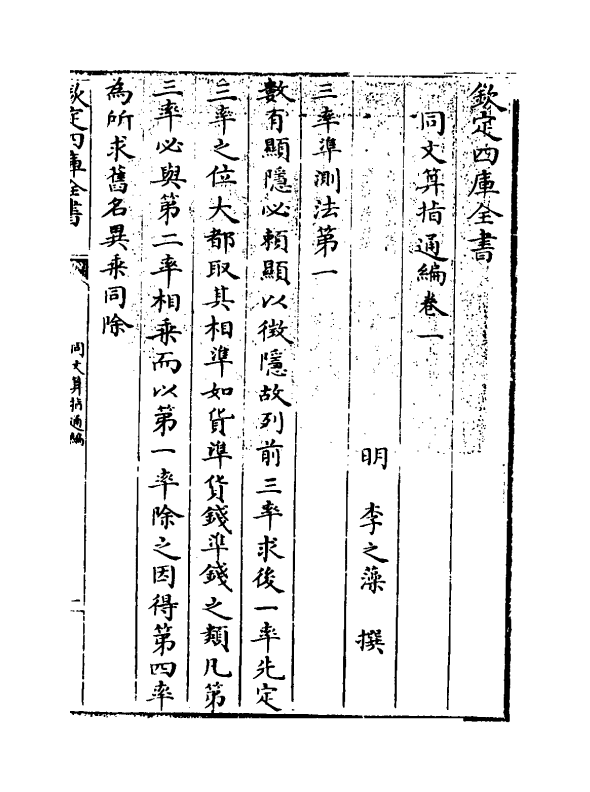 欽定四庫全書
同文算指通編卷一
明　李之藻　撰
三率準測法第一
數有顯隱必賴顯以徵隱故列前三率求後一率先定
三率之位大都取其相準如貨準貨錢準錢之類凡第
三率必與第二率相乘而以第一率除之因得第四率
為所求舊名異乘同除
欽定四庫全書
同文算指通編